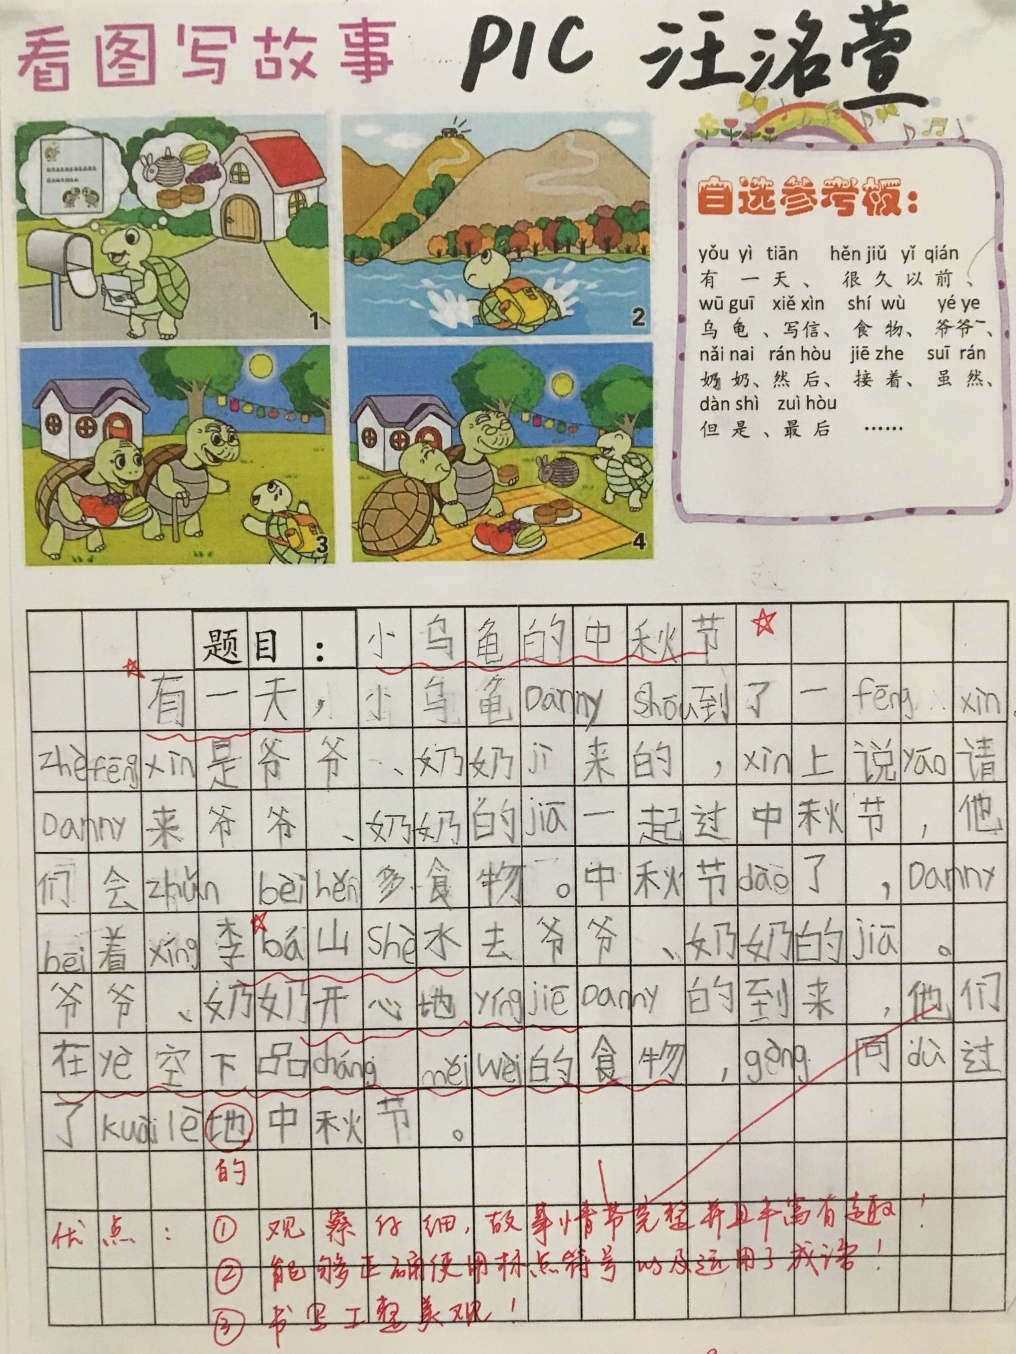 看图写故事 PIC 汪洺萱
1
2
3
4
自选参考板：
yǒu yì tiān hěn jiǔ yǐ qián
有一天、很久以前、
wū guī xiě xìn shí wù yé ye
乌龟、写信、食物、爷爷、
nǎi nai rán hòu jiē zhe suī rán
奶奶、然后、接着、虽然、
dàn shì zuì hòu
但是、最后 ……
题目：小乌龟的中秋节
有一天，小乌龟Danny shōu到了一fēng xìn
zhè fēng xìn是爷爷、奶奶jì来的，xìn上说yāo请
Danny来爷爷、奶奶的jiā一起过中秋节，他
们会zhǔn bèi hěn多食物。中秋节dào了，Danny
bēi着xíng李bá山shè水去爷爷、奶奶的jiā。
爷爷、奶奶开心地yíng jiē Danny的到来，他们
在yè空下品cháng měi wèi的食物，gòng同dù过
了kuài lè地中秋节。
的
优点：① 观察仔细，故事情节完整并且丰富有趣！
② 能够正确使用标点符号以及运用了成语！
③ 书写工整美观！